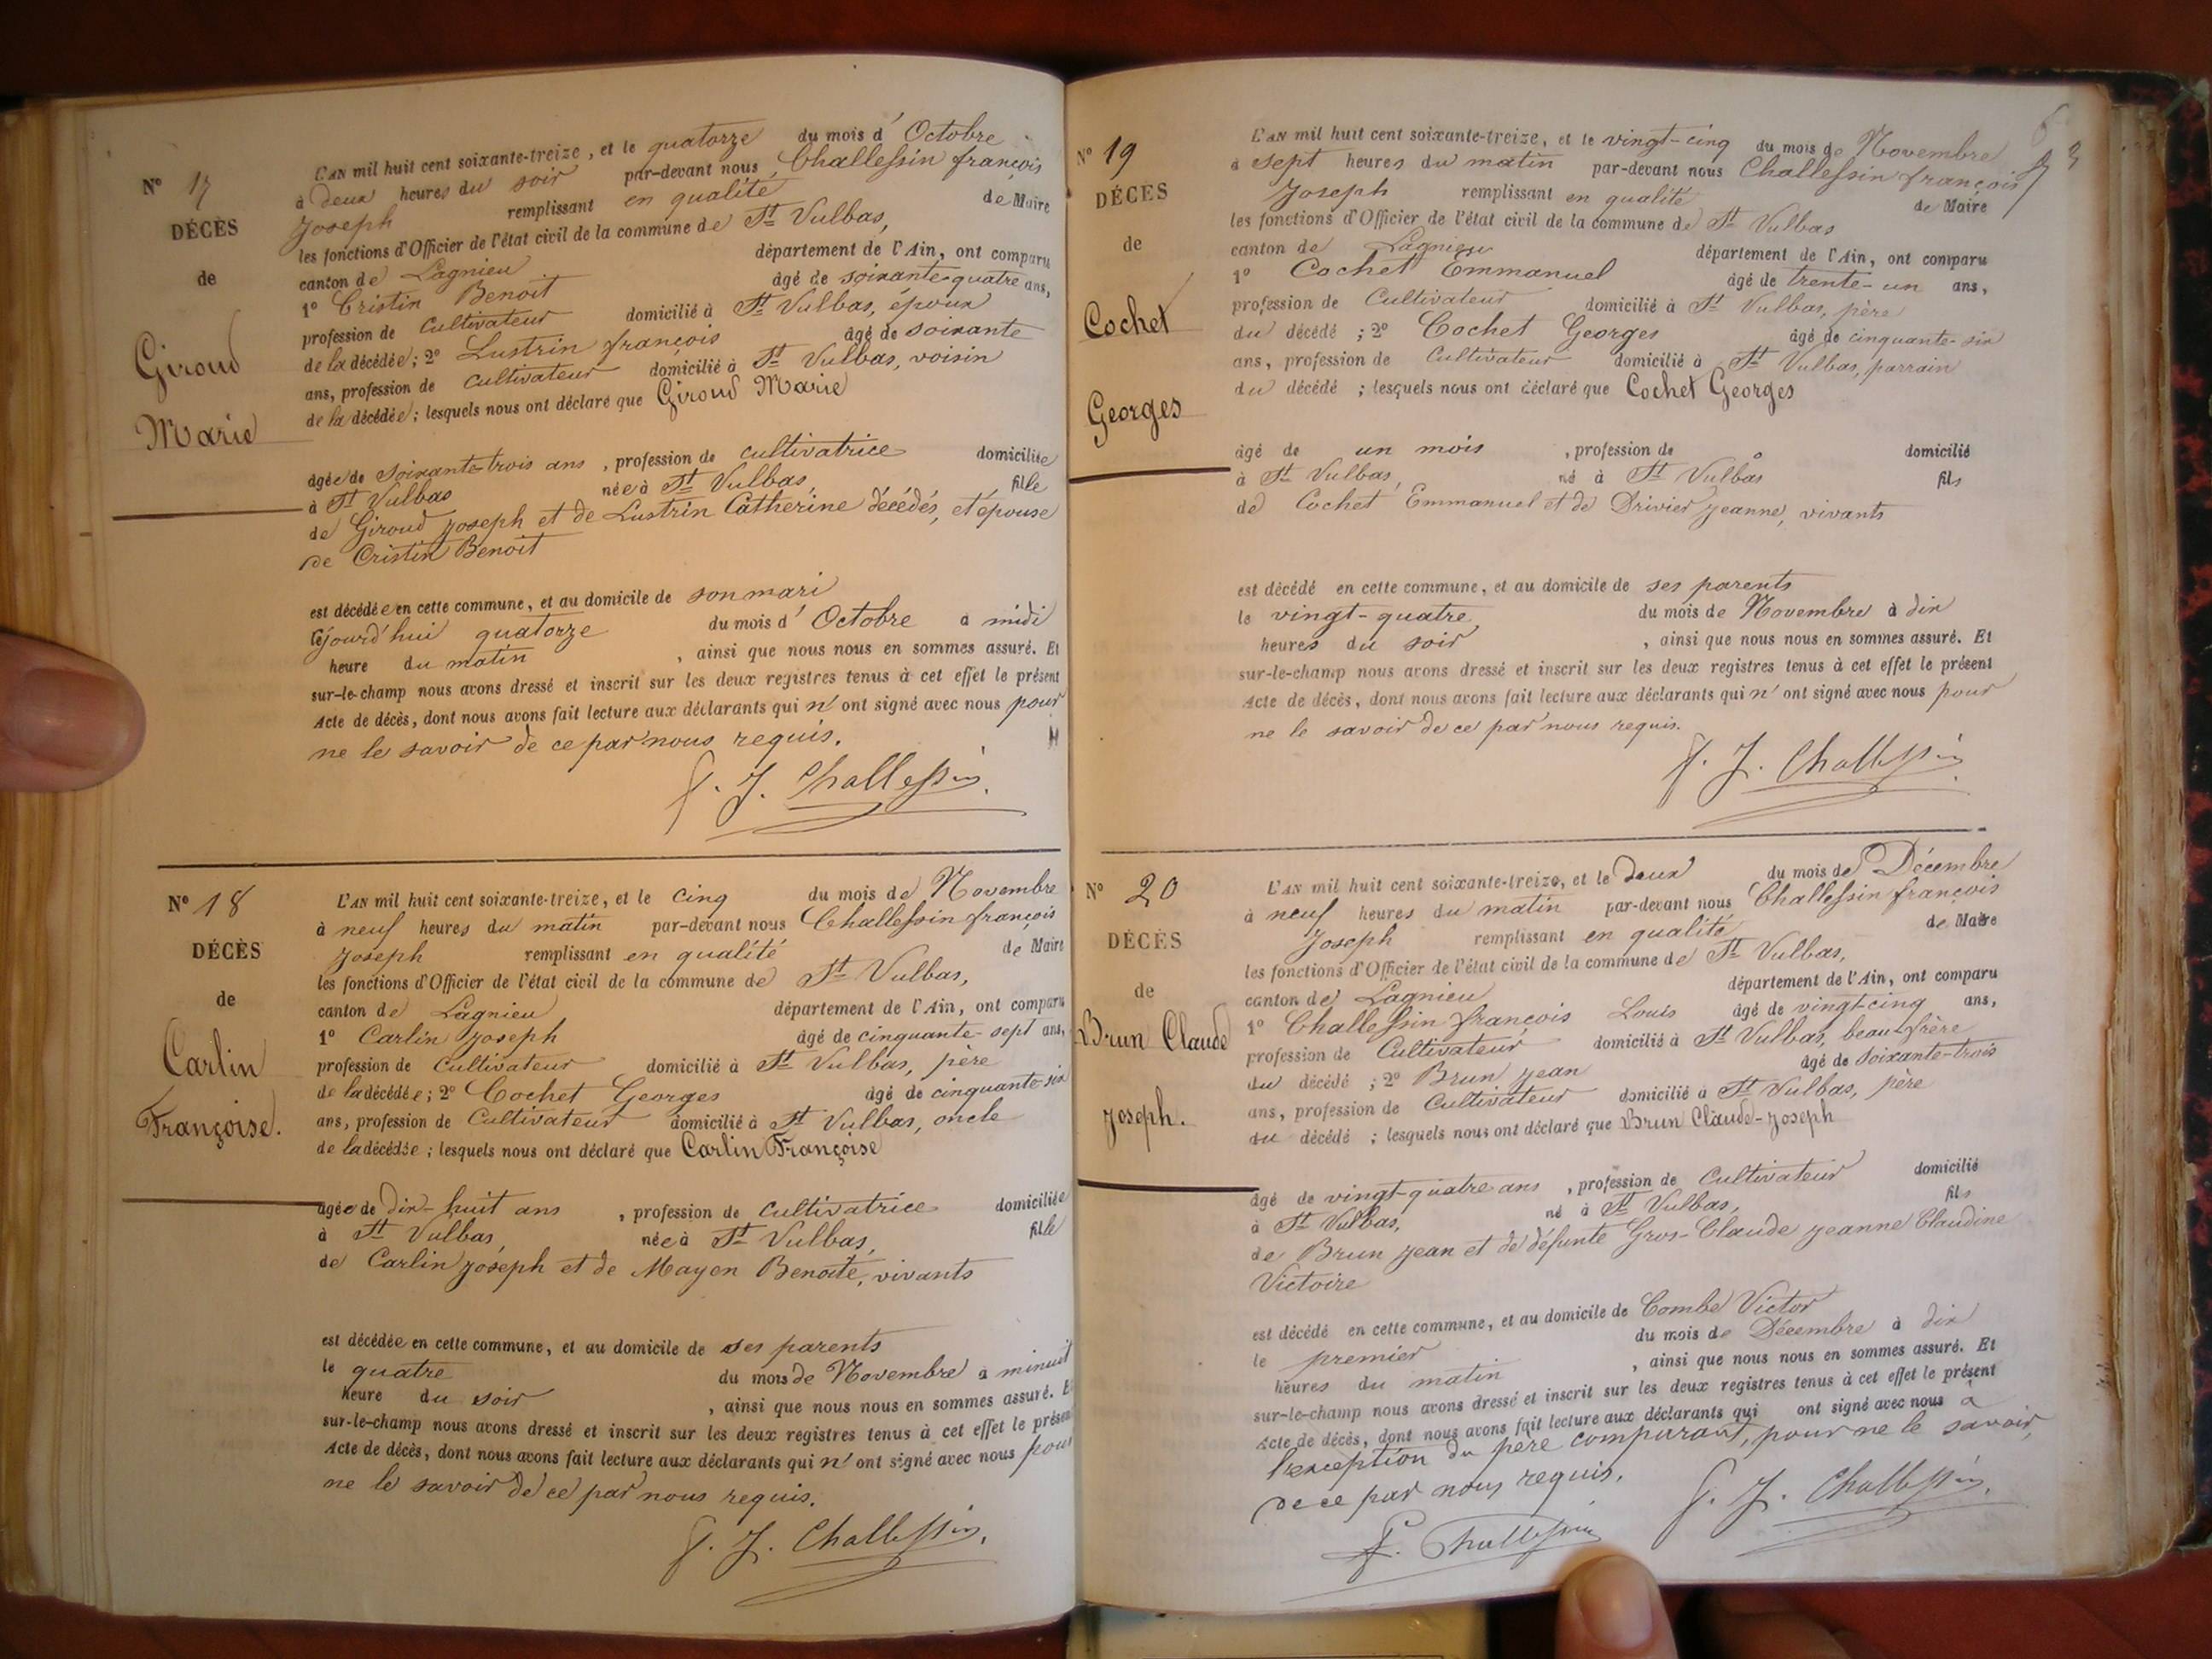 N° 17
DÉCÈS
de
Giroud
Marie
L'AN mil huit cent soixante-treize, et le quatorze du mois d'Octobre
à deux heures du soir par-devant nous Challessin françois
Joseph remplissant en qualité de Maire
les fonctions d'Officier de l'état civil de la commune de St Vulbas,
canton de Lagnieu département de l'Ain, ont comparu
1° Cristin Benoit âgé de soixante-quatre ans,
profession de Cultivateur domicilié à St Vulbas, époux
de la décédée; 2° Lustrin françois âgé de soixante
ans, profession de cultivateur domicilié à St Vulbas, voisin
de la décédée; lesquels nous ont déclaré que Giroud Marie
âgée de soixante-trois ans, profession de cultivatrice domiciliée
à St Vulbas née à St Vulbas, fille
de Giroud Joseph et de Lustrin Catherine décédés, et épouse
de Cristin Benoit
est décédée en cette commune, et au domicile de son mari
cejourd'hui quatorze du mois d'Octobre à midi
heure du matin, ainsi que nous nous en sommes assuré. Et
sur-le-champ nous avons dressé et inscrit sur les deux registres tenus à cet effet le présent
Acte de décès, dont nous avons fait lecture aux déclarants qui n'ont signé avec nous pour
ne le savoir de ce par nous requis.
f. J. Challessin.
N° 18
DÉCÈS
de
Carlin
Françoise.
L'AN mil huit cent soixante-treize, et le cinq du mois de Novembre
à neuf heures du matin par-devant nous Challessin françois
Joseph remplissant en qualité de Maire
les fonctions d'Officier de l'état civil de la commune de St Vulbas,
canton de Lagnieu département de l'Ain, ont comparu
1° Carlin Joseph âgé de cinquante-sept ans,
profession de Cultivateur domicilié à St Vulbas, père
de la décédée; 2° Cochet Georges âgé de cinquante-six
ans, profession de Cultivateur domicilié à St Vulbas, oncle
de la décédée; lesquels nous ont déclaré que Carlin Françoise
âgée de dix-huit ans, profession de Cultivatrice domiciliée
à St Vulbas, née à St Vulbas, fille
de Carlin Joseph et de Mayen Benoîte, vivants
est décédée en cette commune, et au domicile de ses parents
le quatre du mois de Novembre à minuit
heure du soir, ainsi que nous nous en sommes assuré. Et
sur-le-champ nous avons dressé et inscrit sur les deux registres tenus à cet effet le présent
Acte de décès, dont nous avons fait lecture aux déclarants qui n'ont signé avec nous pour
ne le savoir de ce par nous requis.
f. J. Challessin.
N° 19
DÉCÈS
de
Cochet
Georges
L'AN mil huit cent soixante-treize, et le vingt-cinq du mois de Novembre
à sept heures du matin par-devant nous Challessin françois
Joseph remplissant en qualité de Maire
les fonctions d'Officier de l'état civil de la commune de St Vulbas
canton de Lagnieu département de l'Ain, ont comparu
1° Cochet Emmanuel âgé de trente-un ans,
profession de Cultivateur domicilié à St Vulbas, père
du décédé; 2° Cochet Georges âgé de cinquante-six
ans, profession de Cultivateur domicilié à St Vulbas, parrain
du décédé; lesquels nous ont déclaré que Cochet Georges
âgé de un mois, profession de domicilié
à St Vulbas, né à St Vulbas fils
de Cochet Emmanuel et de Drivier Jeanne, vivants
est décédé en cette commune, et au domicile de ses parents
le vingt-quatre du mois de Novembre à dix
heures du soir, ainsi que nous nous en sommes assuré. Et
sur-le-champ nous avons dressé et inscrit sur les deux registres tenus à cet effet le présent
Acte de décès, dont nous avons fait lecture aux déclarants qui n'ont signé avec nous pour
ne le savoir de ce par nous requis.
f. J. Challessin.
N° 20
DÉCÈS
de
Brun Claude
Joseph.
L'AN mil huit cent soixante-treize, et le deux du mois de Décembre
à neuf heures du matin par-devant nous Challessin françois
Joseph remplissant en qualité de Maire
les fonctions d'Officier de l'état civil de la commune de St Vulbas,
canton de Lagnieu département de l'Ain, ont comparu
1° Challessin françois Louis âgé de vingt-cinq ans,
profession de Cultivateur domicilié à St Vulbas, beau-frère
du décédé; 2° Brun Jean âgé de soixante-trois
ans, profession de Cultivateur domicilié à St Vulbas, père
du décédé; lesquels nous ont déclaré que Brun Claude-Joseph
âgé de vingt-quatre ans, profession de Cultivateur domicilié
à St Vulbas, né à St Vulbas, fils
de Brun Jean et de défunte Gros-Claude Jeanne Claudine
Victoire
est décédé en cette commune, et au domicile de Combe Victor
le premier du mois de Décembre à dix
heures du matin, ainsi que nous nous en sommes assuré. Et
sur-le-champ nous avons dressé et inscrit sur les deux registres tenus à cet effet le présent
Acte de décès, dont nous avons fait lecture aux déclarants qui ont signé avec nous à
l'exception du père comparant, pour ne le savoir,
de ce par nous requis.
f. J. Challessin.
f. Challessin